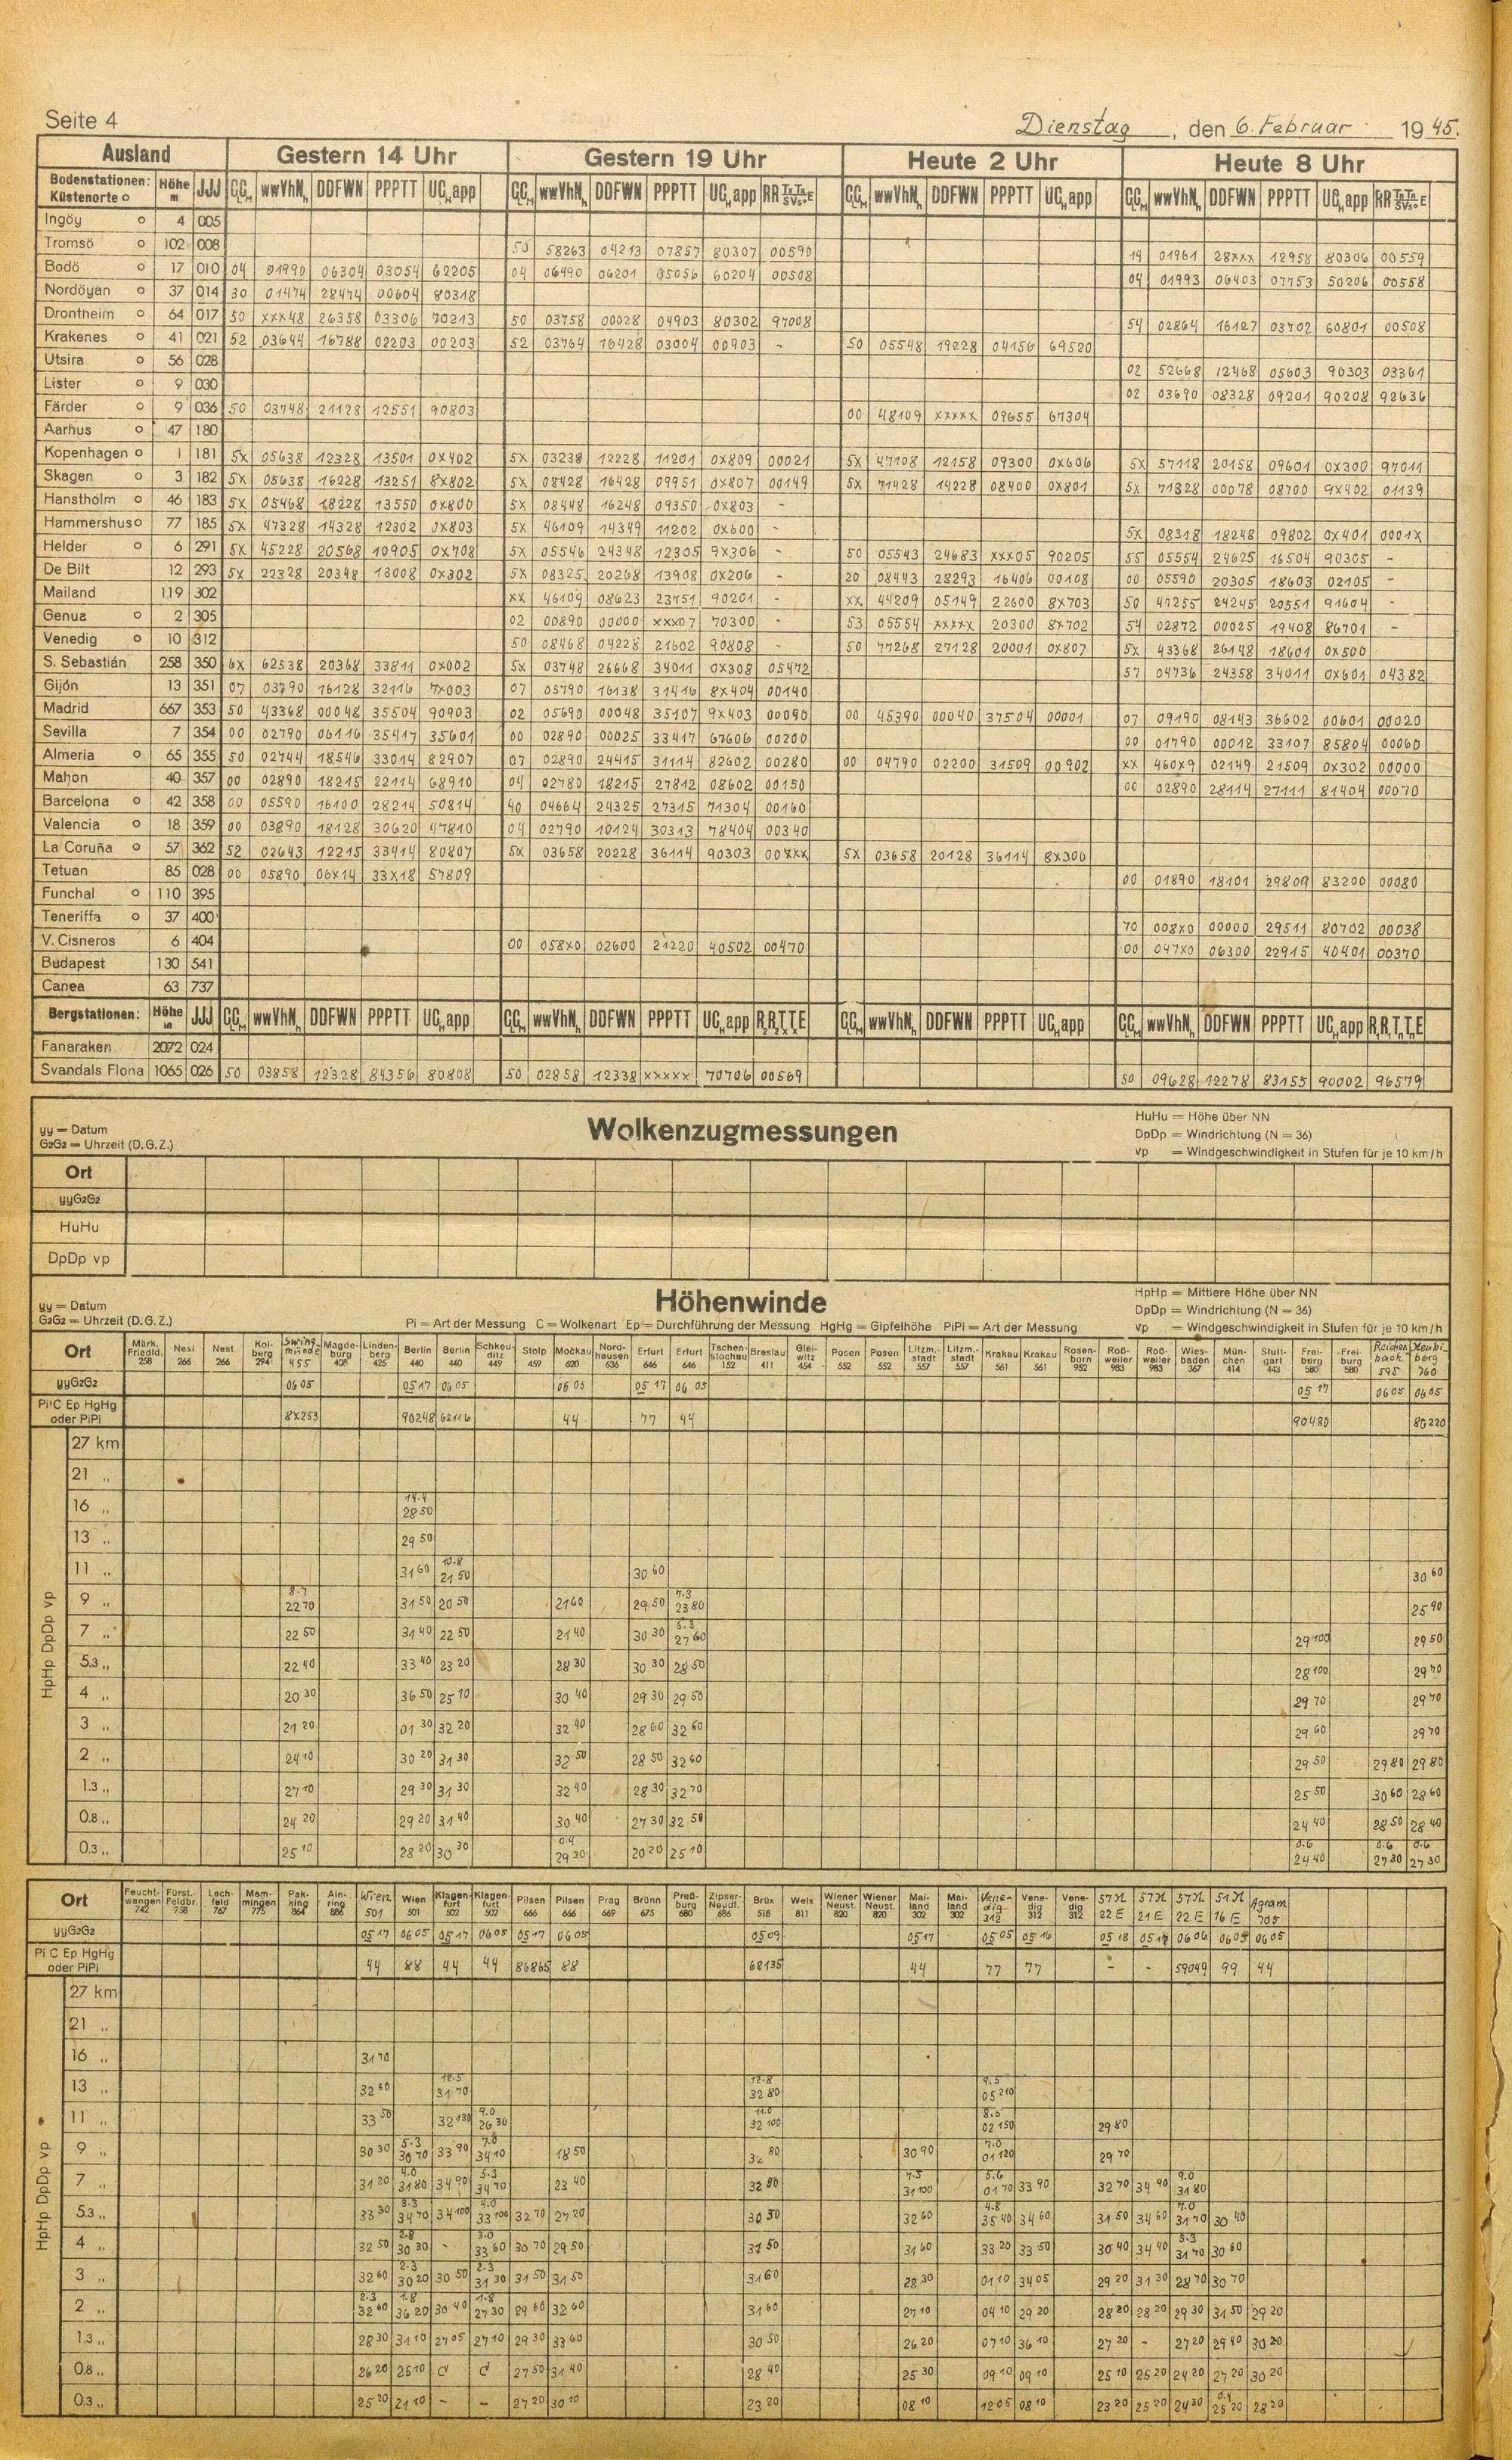 Seite 4
Dienstag, den 6. Februar 1945.
Ausland Gestern 14 Uhr Gestern 19 Uhr Heute 2 Uhr Heute 8 Uhr
Bodenstationen: Küstenorte o Höhe m JJJ
Ingöy o 4 005
Tromsö o 102 008 50 58263 04213 07857 80307 00590 14 01961 28xxx 12958 80306 00559
Bodö o 17 010 04 01990 06304 03054 62205 04 06490 06201 05056 60204 00508 04 01993 06403 07753 50206 00558
Nordöyan o 37 014 30 01474 28474 00604 80318
Drontheim o 64 017 50 xxx48 26358 03306 70213 50 03758 00028 04903 80302 97008 54 02864 16127 03702 60801 00508
Krakenes o 41 021 52 03644 16788 02203 00203 52 03764 16428 03004 00903 - 50 05548 19228 04156 69520
Utsira o 56 028 02 52668 12468 05603 90303 03361
Lister o 9 030 02 03690 08328 09201 90208 92636
Färder o 9 036 50 03748 21128 12551 90803 00 48109 xxxxx 09655 67304
Aarhus o 47 180
Kopenhagen o 1 181 5x 05638 12328 13501 0x402 5x 03238 12228 11201 0x809 00021 5x 47108 12158 09300 0x606 5x 57118 20158 09601 0x300 97011
Skagen o 3 182 5x 05638 16228 13251 8x802 5x 08428 16428 09951 0x807 00149 5x 71428 14228 08400 0x801 5x 71828 00078 08700 9x402 01139
Hanstholm o 46 183 5x 05468 18228 13550 0x800 5x 08448 16248 09350 0x803 -
Hammershus o 77 185 5x 47328 14328 12302 0x803 5x 46109 14349 11202 0x600 - 5x 08318 18248 09802 0x401 0001x
Helder o 6 291 5x 45228 20568 10905 0x708 5x 05546 24348 12305 9x306 - 50 05543 24683 xxx05 90205 55 05554 24625 16504 90305 -
De Bilt 12 293 5x 22328 20348 13008 0x302 5x 08325 20268 13908 0x206 - 20 08443 28293 16406 00108 00 05590 20305 18603 02105 -
Mailand 119 302 xx 46109 08623 23751 90201 - xx 44209 05149 22600 8x703 50 47255 24245 20551 91604 -
Genua o 2 305 02 00890 00000 xxx07 70300 - 53 05554 xxxxx 20300 8x702 54 02872 00025 19408 86701 -
Venedig o 10 312 50 08468 04228 21602 90808 - 50 77268 27128 20001 0x807 5x 43368 26148 18601 0x500
S. Sebastián 258 350 6x 62538 20368 33811 0x002 5x 03748 26668 34011 0x308 05472 57 04736 24358 34011 0x601 04382
Gijón 13 351 07 03790 16128 32116 7x003 07 05790 16138 31416 8x404 00140
Madrid 667 353 50 43368 00048 35504 90903 02 05690 00048 35107 9x403 00090 00 45390 00040 37504 00001 07 09190 08143 36602 00601 00020
Sevilla 7 354 00 02790 06116 35417 35601 00 02890 00025 33417 67606 00200 00 01790 00012 33107 85804 00060
Almeria o 65 355 50 02744 18546 33014 82907 07 02890 24415 31114 82602 00280 00 04790 02200 31509 00902 xx 460x9 02149 21509 0x302 00000
Mahon 40 357 00 02890 18215 22114 68910 04 02780 18215 27812 08602 00150 00 02890 28114 27111 81404 00070
Barcelona o 42 358 00 05590 16100 28214 50814 40 04664 24325 27315 71304 00160
Valencia o 18 359 00 03890 18128 30620 47810 04 02790 10124 30313 78404 00340
La Coruña o 57 362 52 02643 12215 33414 80807 5x 03658 20228 36114 90303 00xxx 5x 03658 20128 36114 8x306
Tetuan 85 028 00 05890 06x14 33x18 57809 00 01890 18101 29809 83200 00080
Funchal o 110 395
Teneriffa o 37 400 70 008x0 00000 29511 80702 00038
V. Cisneros 6 404 00 058x0 02600 21220 40502 00470 00 047x0 06300 22915 40401 00370
Budapest 130 541
Canea 63 737
Bergstationen: Höhe m JJJ
Fanaraken 2072 024
Svandals Flona 1065 026 50 03858 12328 84356 80808 50 02858 12338 xxxxx 70706 00569 50 09628 12278 83155 90002 96579
Wolkenzugmessungen
yy = Datum
G₂G₂ = Uhrzeit (D.G.Z.)
HuHu = Höhe über NN
DpDp = Windrichtung (N = 36)
vp = Windgeschwindigkeit in Stufen für je 10 km/h
Ort
yyG₂G₂
HuHu
DpDp vp
Höhenwinde
yy = Datum
G₂G₂ = Uhrzeit (D.G.Z.)
Pi = Art der Messung C = Wolkenart Ep = Durchführung der Messung HgHg = Gipfelhöhe PiPi = Art der Messung
HpHp = Mittlere Höhe über NN
DpDp = Windrichtung (N = 36)
vp = Windgeschwindigkeit in Stufen für je 10 km/h
Ort Märk. Friedl. 258 Nest 266 Nest 266 Kolberg 294 Swinemünde 455 Magdeburg 408 Lindenberg 425 Berlin 440 Berlin 440 Schkeuditz 449 Stolp 459 Mockau 620 Nordhausen 636 Erfurt 646 Erfurt 646 Tschenstochau 152 Breslau 411 Gleiwitz 454 Posen 552 Posen 552 Litzm.-stadt 557 Litzm.-stadt 557 Krakau 561 Krakau 561 Rosenborn 952 Roßweiler 983 Roßweiler 983 Wiesbaden 367 München 414 Stuttgart 443 Freiburg 580 Freiburg 580 Reichenbach 595 760
yyG₂G₂ 0605 0517 0605 0605 0517 0605 0517 0605 0605
Pi C Ep HgHg oder PiPi 8x253 90248 62116 44 77 44 90480 80220
HpHp DpDp vp
27 km
21 „
16 „ 14.4 2850
13 „ 2950
11 „ 3160 10.8 2150 3060 3060
9 „ 8.7 2270 3150 2050 2160 2950 7.3 2380 2590
7 „ 2250 3140 2250 2140 3030 6.3 2760 29100 2950
5.3 „ 2240 3340 2320 2830 3030 2850 28100 2970
4 „ 2030 3650 2510 3040 2930 2950 2970 2970
3 „ 2120 0130 3220 3240 2860 3260 2960 2970
2 „ 2410 3020 3130 3250 2850 3260 2950 2980 2980
1.3 „ 2710 2930 3130 3240 2830 3270 2550 3060 2860
0.8 „ 2420 2920 3140 3040 2730 3250 2440 2850 2840
0.3 „ 2510 2820 3030 0.4 2930 2020 2510 0.6 2440 0.6 2730 0.6 2730
Ort Feuchtwangen 742 Fürst.-Feldbr. 758 Lechfeld 767 Memmingen 775 Pakking 864 Ainring 886 Wien 501 Wien 501 Klagenfurt 502 Klagenfurt 502 Pilsen 666 Pilsen 666 Prag 669 Brünn 675 Preßburg 680 Zipser-Neudf. 686 Brüx 518 Wels 811 Wiener Neust. 820 Wiener Neust. 820 Mailand 302 Mailand 302 Venedig 312 Venedig 312 Venedig 312 57N 22E 57N 21E 57N 22E 51N 16E Agram 705
yyG₂G₂ 0517 0605 0517 0605 0517 0605 0509 0517 0505 0516 0518 0517 0606 0605 0605
Pi C Ep HgHg oder PiPi 44 88 44 44 86865 88 68135 44 77 77 - - 59049 99 44
HpHp DpDp vp
27 km
21 „
16 „ 3170
13 „ 3260 12.5 3170 12.8 3280 9.5 05210
11 „ 3350 32130 9.0 2630 11.0 32100 8.5 02150 2980
9 „ 3030 5.3 3070 3390 7.0 3410 1850 3280 3090 7.0 01120 2970
7 „ 3120 4.0 3180 3490 5.3 3470 2340 3280 7.5 31100 5.6 0170 3390 3270 3490 9.0 3180
5.3 „ 3330 3.3 3470 34100 4.0 33100 3270 2720 3050 3260 4.8 3540 3460 3150 3460 7.0 3170 3040
4 „ 3250 2.8 3030 - 3.0 3360 3070 2950 3150 3160 3320 3350 3040 3440 5.3 3170 3060
3 „ 3260 2.3 3020 3050 2.3 3130 3150 3150 3160 2830 0110 3405 2920 3130 2870 3070
2 „ 2.3 3260 1.8 3620 3040 1.8 2730 2960 3260 3160 2710 0410 2920 2820 2820 2930 3150 2920
1.3 „ 2830 3110 2705 2710 2930 3360 3050 2620 0710 3610 2720 - 2720 2940 3020
0.8 „ 2620 2510 d d 2750 3140 2840 2530 0910 0910 2510 2520 2420 2720 3020
0.3 „ 2520 2110 - - 2720 3010 2320 0810 1205 0810 2320 2520 2430 0.4 2520 2820